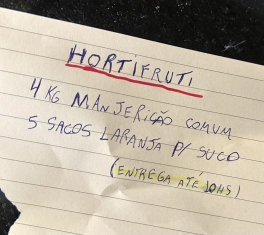 HORTIFRUTI
4 KG MANJERICÃO COMUM
5 SACOS LARANJA P/ SUCO
(ENTREGA ATÉ 10HS)